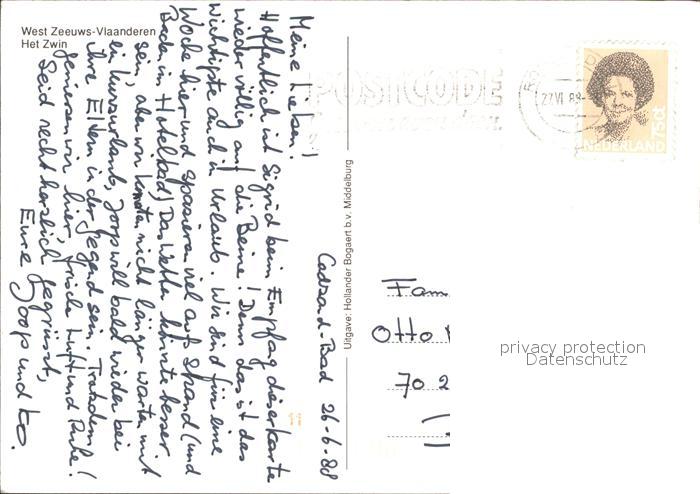 West Zeeuws-Vlaanderen
Het Zwin
Cadzand-Bad 26-6-88
Meine Lieben!
Hoffentlich ist Sigrid beim Empfang dieser Karte
wieder völlig auf die Beine! Denn das ist das
Wichtigste auch in Urlaub. Wir sind für eine
Woche hier und spazieren viel aufs Strand (und
Baden in Hotelbad) Das Wetter könnte besser
sein, aber wir konnten nicht länger warten mit
ein Kurzurlaub, Joop will bald wieder bei
ihre Eltern in der Gegend sein. Trotzdem
genieszen wir hier, frische Luft und Ruhe!
Seid recht herzlich gegrüsst,
Eure Joop und Co.
Uitgave: Hollander Bogaert b.v. Middelburg
POSTCODE
27 VI 88
NEDERLAND 75ct
Fam
Otto
70 2
privacy protection
Datenschutz